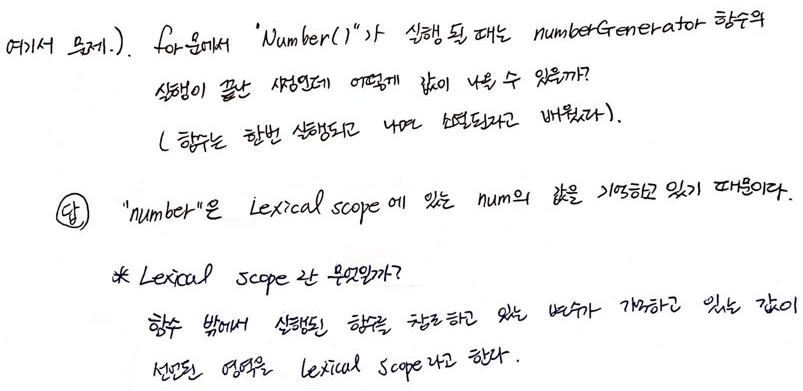 여기서 문제.). for문에서 "Number()"가 실행 될 때는 numberGenerator 함수의
실행이 끝난 시점인데 어떻게 값이 나올 수 있을까?
( 함수는 한번 실행되고 나면 소멸된다고 배웠다).
답 "number"은 Lexical scope에 있는 num의 값을 기억하고 있기 때문이다.
* Lexical scope란 무엇일까?
함수 밖에서 실행된 함수를 참조하고 있는 변수가 기억하고 있는 값이
선언된 영역을 Lexical Scope라고 한다.